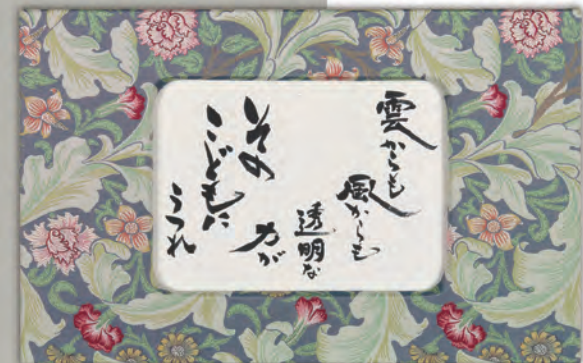 雲からも
風からも
透明な
力が
その
こどもに
うつれ